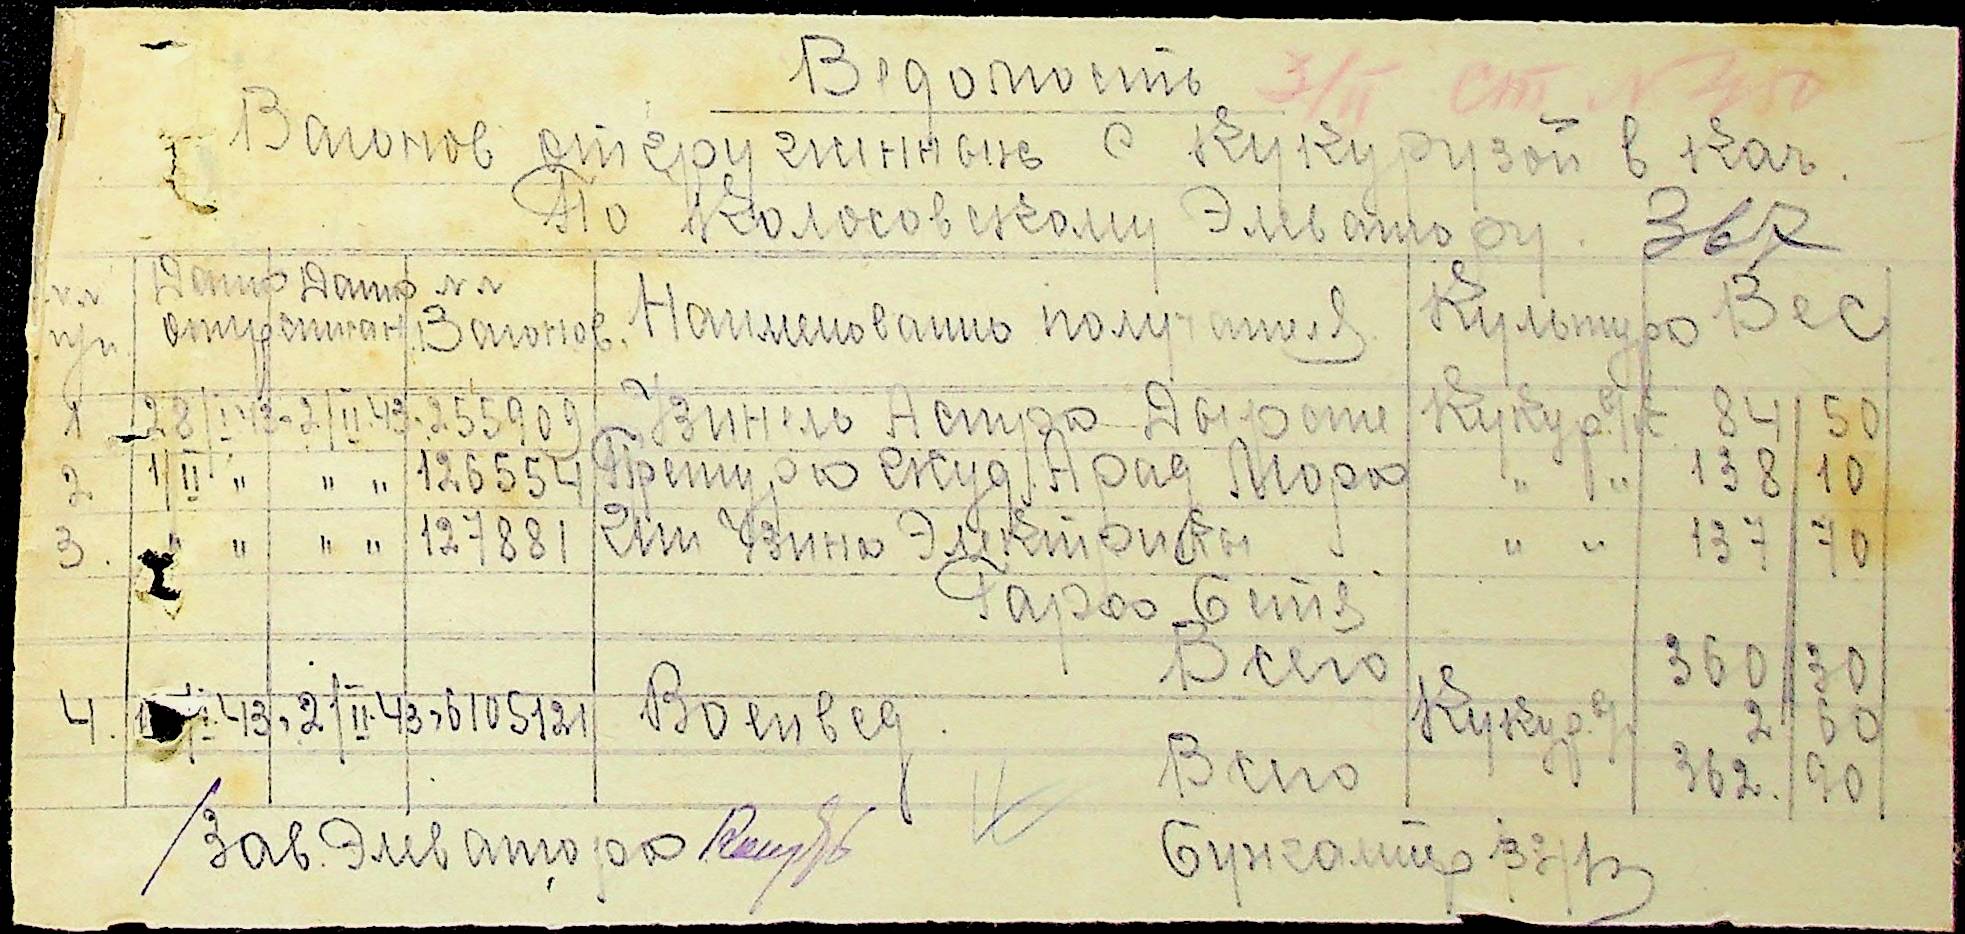 Ведомость 3/II
Вагонов отгруженных с Кукурузой в кач.
По Колосовскому Элеватору. 367
№№ п/п. Дата отгр Дата №№ Вагонов. Наименование получателя Культура Вес
1 28/I 43. 2/II 43. 255909 Узинель Астра Кукур. 84 50
2 1/II " " " 126554 Претура Арад Мора " " 138 10
3. " " " " 127881 Узина Электрики " " 137 70
Гара
Всего 360 30
4. I 43. 2/II 43. 6105121 Военвед. Кукур. 2 60
Всего 362. 90
Зав. Элеватора Бухгалтер